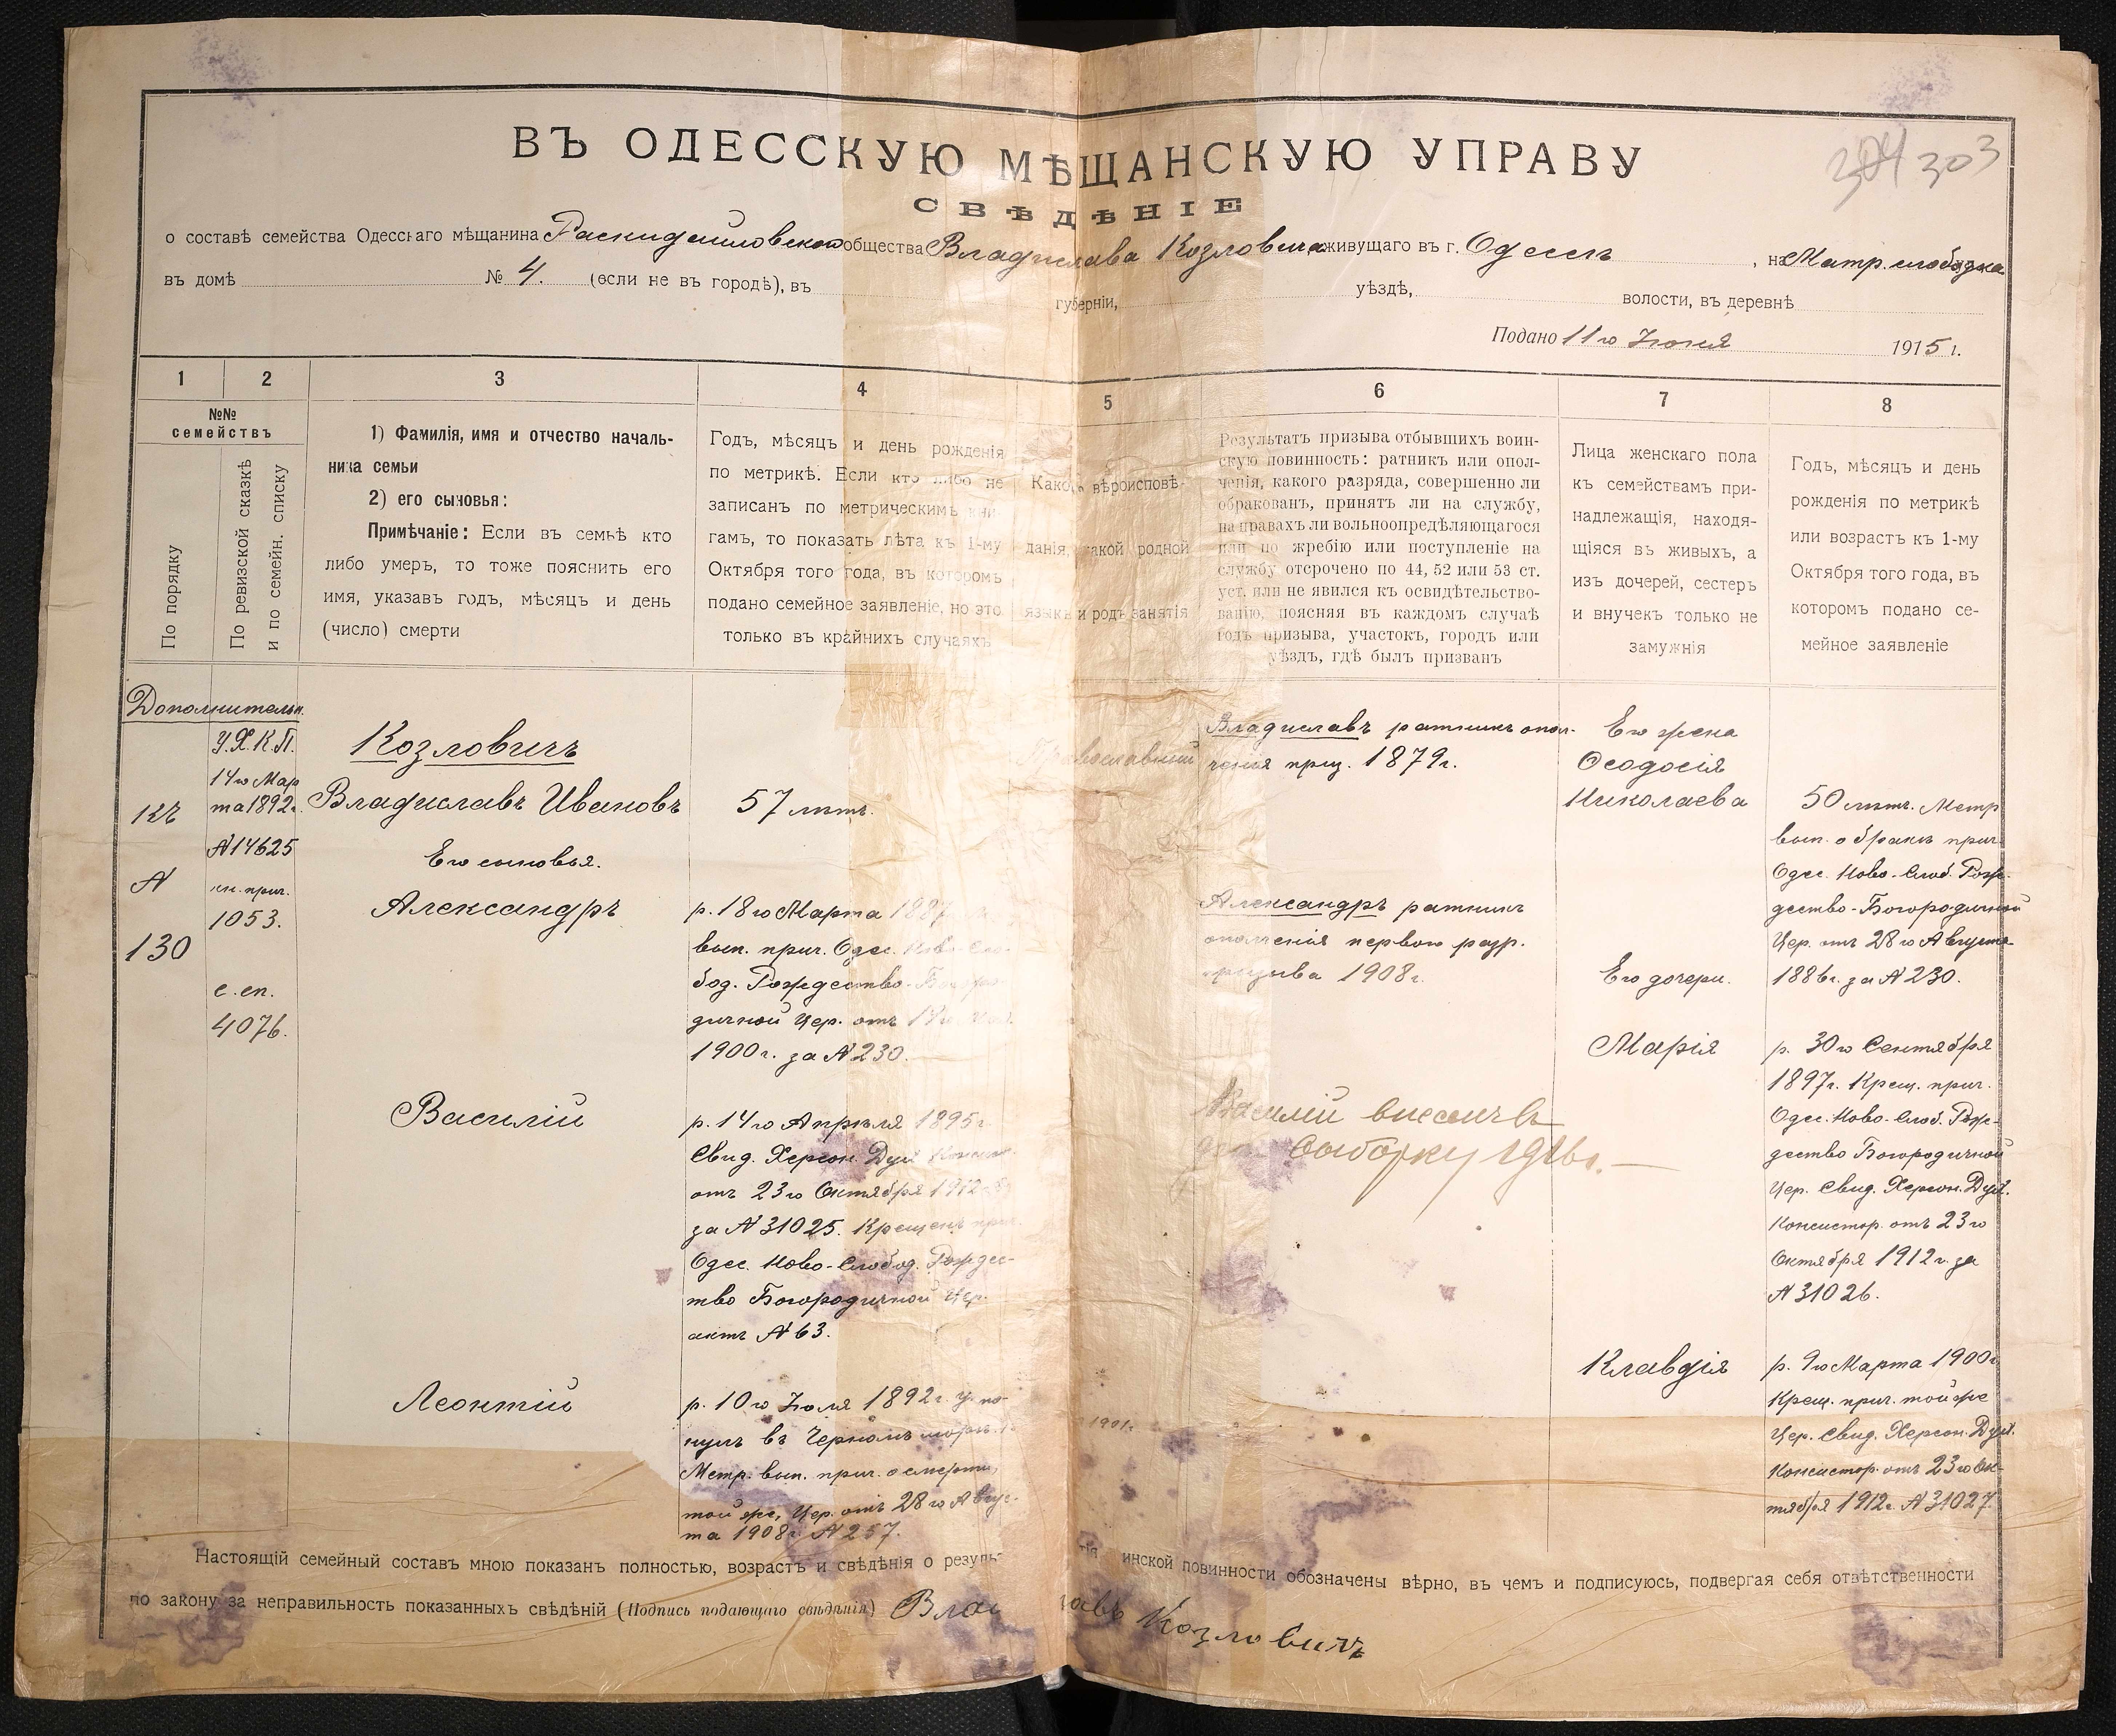 ВЪ ОДЕССКУЮ МѢЩАНСКУЮ УПРАВУ
303
СВѢДѢНІЕ
о составѣ семейства Одесскаго мѣщанина Раскидайловскаго общества Владислава Козловича живущаго въ г. Одессѣ, на
въ домѣ № 4. (если не въ городѣ), въ губерніи, уѣздѣ, волости, въ деревнѣ
Подано 11го Іюня 1915 г.
1 2 3 4 5 6 7 8
№№ семействъ
По порядку
По ревизской сказкѣ и по семейн. списку
1) Фамилія, имя и отчество началь-
ника семьи
2) его сыновья:
Примѣчаніе: Если въ семьѣ кто
либо умеръ, то тоже пояснить его
имя, указавъ годъ, мѣсяцъ и день
(число) смерти
Годъ, мѣсяцъ и день рожденія
по метрикѣ. Если кто либо не
записанъ по метрическимъ кни-
гамъ, то показать лѣта къ 1-му
Октября того года, въ которомъ
подано семейное заявленіе, но это
только въ крайнихъ случаяхъ
Какого вѣроисповѣ-
данія, какой родной
языкъ и родъ занятія
Результатъ призыва отбывшихъ воин-
скую повинность: ратникъ или опол-
ченія, какого разряда, совершенно ли
обракованъ, принятъ ли на службу,
на правахъ ли вольноопредѣляющагося
или по жребію или поступленіе на
службу отсрочено по 44, 52 или 53 ст.
уст. или не явился къ освидѣтельство-
ванію, поясняя въ каждомъ случаѣ
годъ призыва, участокъ, городъ или
уѣздъ, гдѣ былъ призванъ
Лица женскаго пола
къ семействамъ при-
надлежащія, находя-
щіяся въ живыхъ, а
изъ дочерей, сестеръ
и внучекъ только не
замужнія
Годъ, мѣсяцъ и день
рожденія по метрикѣ
или возрастъ къ 1-му
Октября того года, въ
которомъ подано се-
мейное заявленіе
Дополнительн.
къ
№
130
У.Х.К.П.
14го Мар
та 1892г.
№ 14625
кн. прич.
1053.
с. сп.
4076.
Козловичъ
Владиславъ Ивановъ
Его сыновья.
Александръ
Василій
Леонтій
57 лѣтъ.
р. 18го Марта 1887
вып. прич. Одес. Ново-Сло-
бод. Рождество-Богоро-
дичной Цер. отъ
1900г. за № 230.
р. 14го Апрѣля 1895г.
Свид. Херсон. Дух. Консис.
отъ 23го Октября 1912г.
за № 31025. Крещенъ прич.
Одес. Ново-Слобод. Рождес-
тво Богородичной Цер.
актъ № 63.
р. 10го Іюля 1892г. Уто-
нулъ въ Черномъ морѣ 1901г.
Метр. вып. прич. о смерти,
той же, Цер. отъ 28го Авгус-
та 1908г. № 257.
Православный
Владиславъ ратникъ опол-
ченія приз. 1879г.
Александръ ратникъ
ополченія первого разр.
призыва 1908г.
Василій внесенъ въ
1916г.
Его жена
Ѳеодосія
Николаева
Его дочери.
Марія
Клавдія
50 лѣтъ. Метр
вып. о бракѣ прич.
Одес. Ново-Слоб. Рож-
дество-Богородичной
Цер. отъ 28го Августа
1886г. за № 230.
р. 30го Сентября
1897г. Крещ. прич.
Одес. Ново-Слоб. Рож-
дество Богородичной
Цер. Свид. Херсон. Дух.
Консистор. отъ 23го
Октября 1912г. за
№ 31026.
р. 9го Марта 1900г.
Крещ. прич. той же
Цер. Свид. Херсон. Дух.
Консистор. отъ 23го Ок-
тября 1912г. № 31027.
Настоящій семейный составъ мною показанъ полностью, возрастъ и свѣдѣнія о резуль тія инской повинности обозначены вѣрно, въ чемъ и подписуюсь, подвергая себя отвѣтственности
по закону за неправильность показанныхъ свѣдѣній (Подпись подающаго свѣдѣнія) Влад лавъ Козловичъ